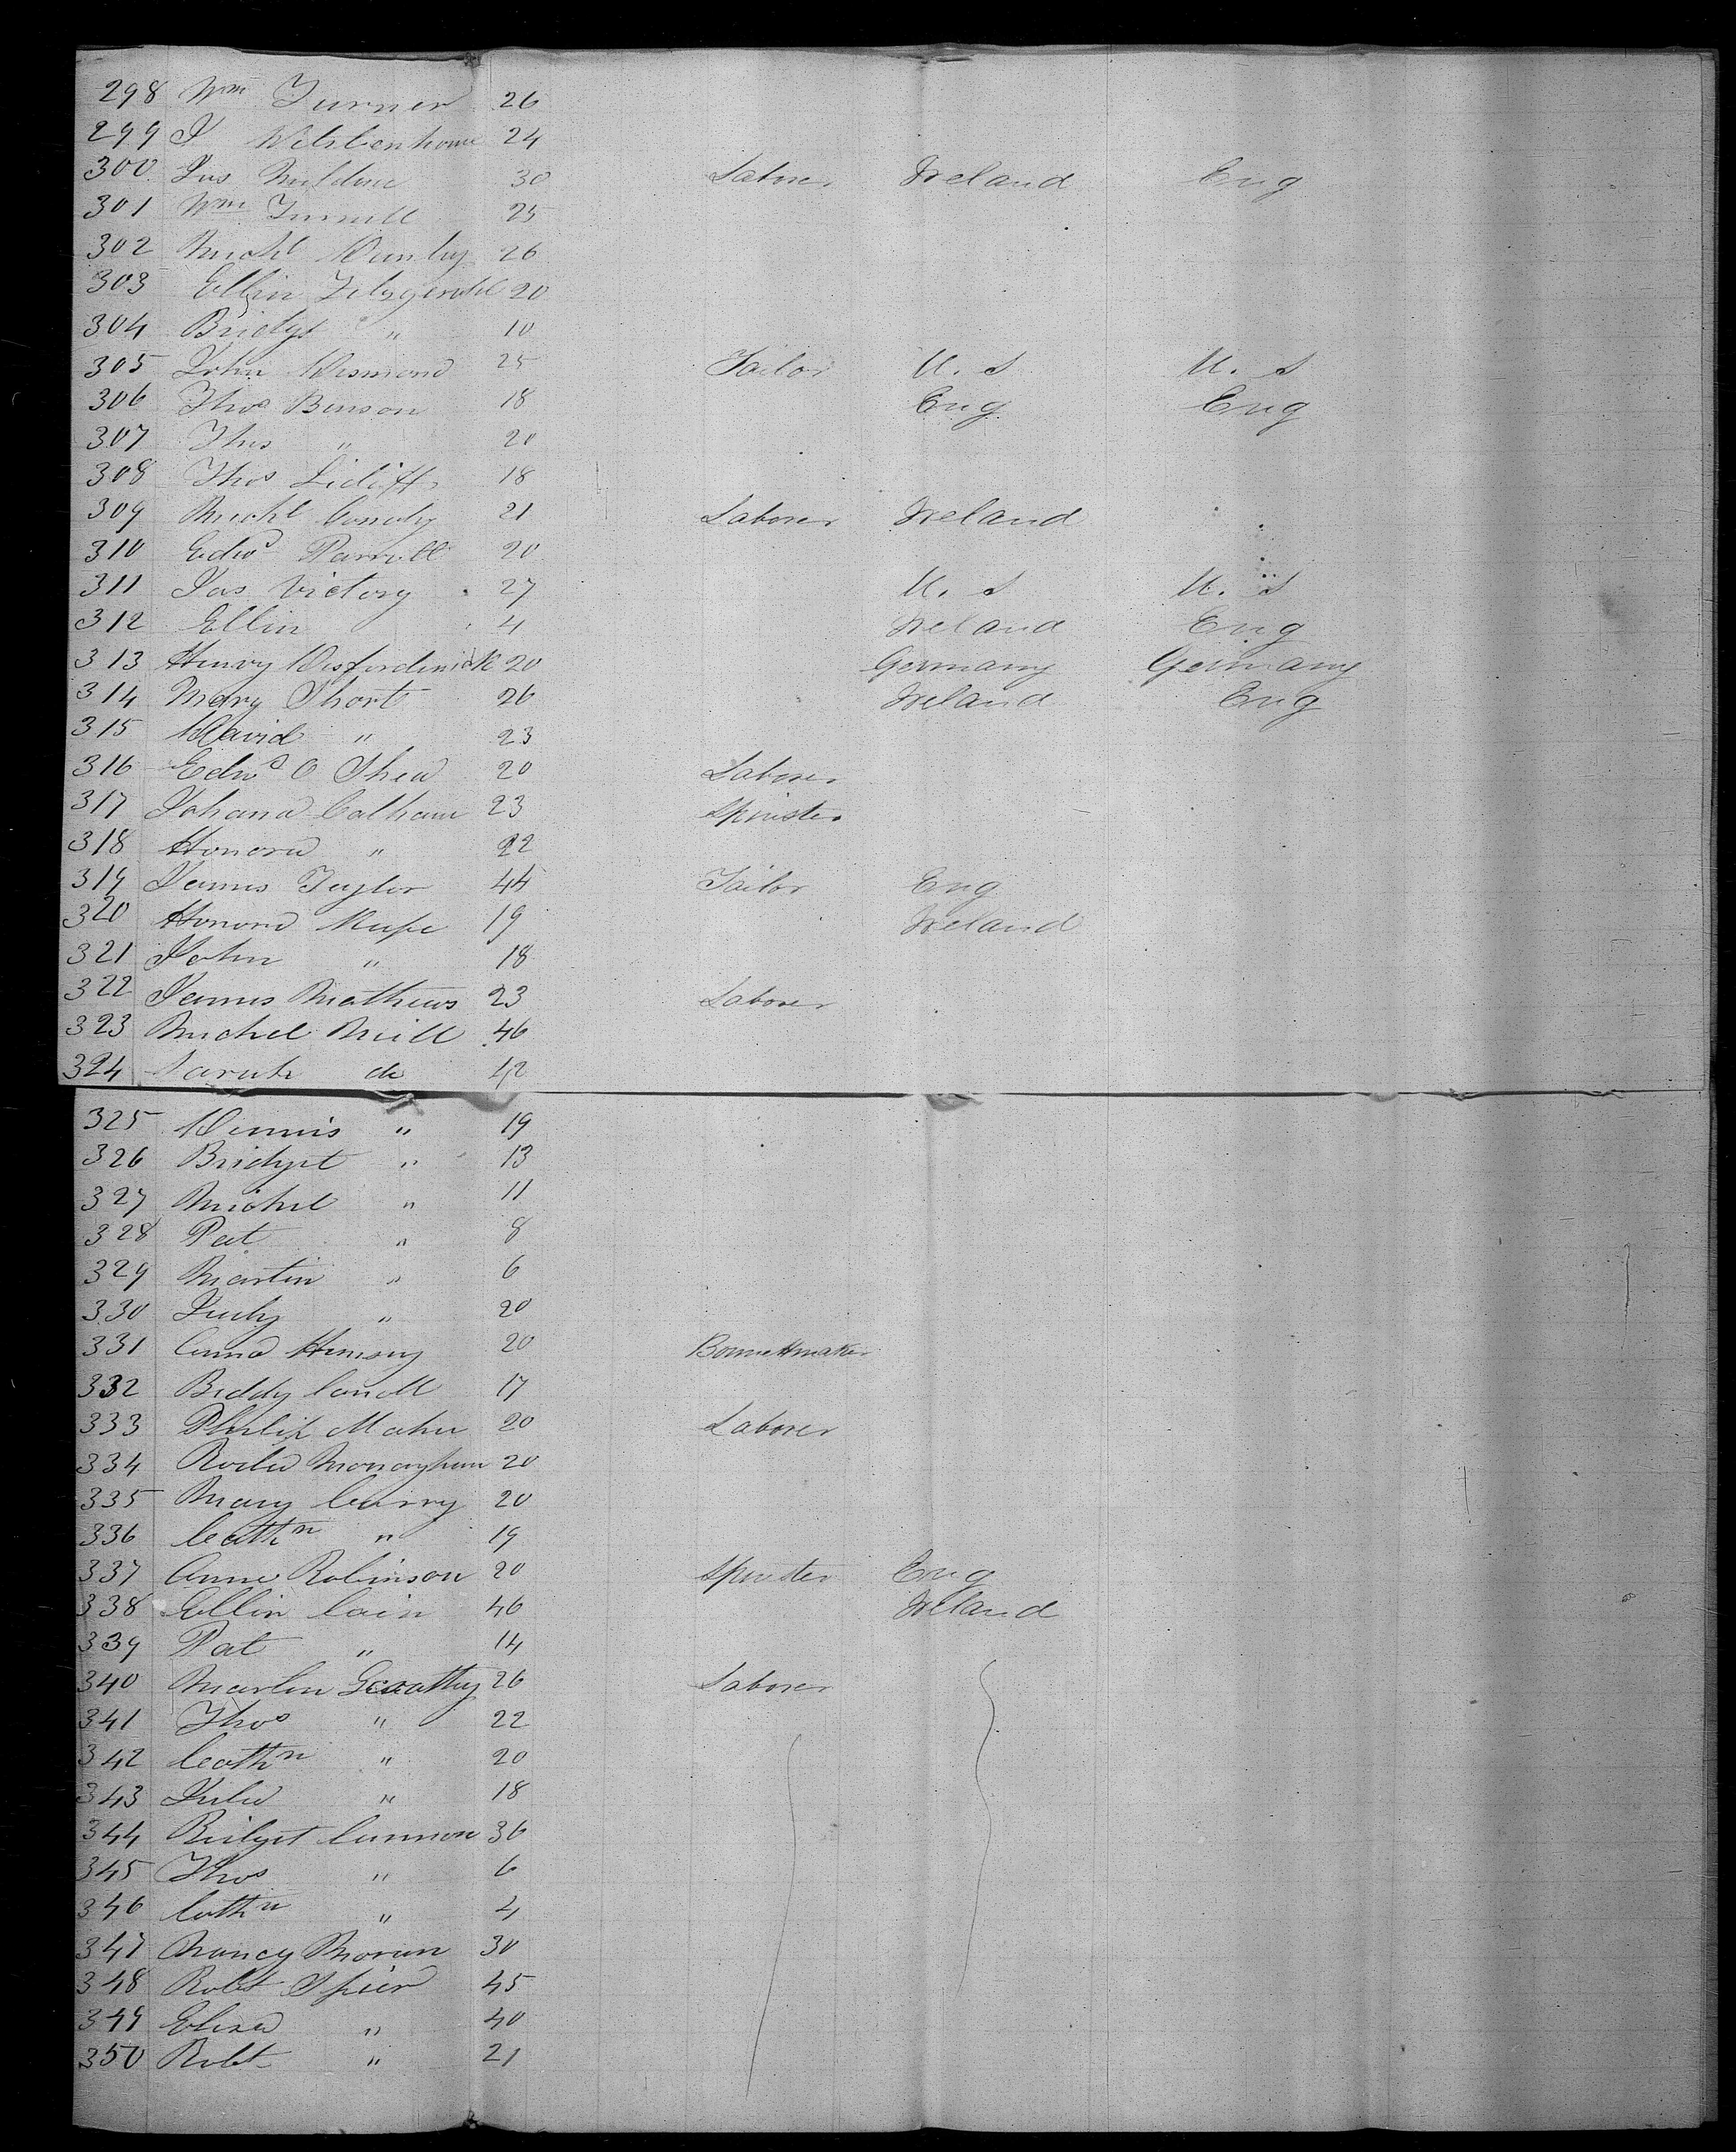 298 Wm Turner 26
299 J 24
300 Jas Muldune 30 Laborer Ireland Eng
301 Wm Turnill 25
302 Michl Dunley 26
303 Ellin Fitzgerald 20
304 Bridgt " 10
305 John Desmond 25 Tailor U. S U. S
306 Thos Binson 18 Eng Eng
307 Thos " 20
308 Thos 18
309 Michl Conoly 21 Laborer Ireland
310 Edwd Parrell 20
311 Jas Victory 27 U. S U. S
312 Ellin 4 Ireland Eng
313 Henry 20 Germany Germany
314 Mary Short 26 Ireland Eng
315 David " 23
316 Edwd O Shea 20 Laborer
317 Johana Calhoun 23 Spinster
318 Honora " 22
319 James Taylor 44 Tailor Eng
320 Honora 19 Ireland
321 John " 18
322 James Mathews 23 Laborer
323 Michel Neill 46
324 Sarah do 42
325 Dennis " 19
326 Bridget " 13
327 Michel " 11
328 Pat " 8
329 Martin " 6
330 Judy " 20
331 Anna Hensey 20 Bonnettmaker
332 Biddy Conoll 17
333 Philip Maher 20 Laborer
334 Monaghan 20
335 Mary Curry 20
336 Cathn " 19
337 Anne Robinson 20 Spinster Eng
338 Ellin Cain 46 Ireland
339 Pat " 14
340 Martin Gerathy 26 Laborer
341 Thos " 22
342 Cathn " 20
343 Julia " 18
344 Bridget Cannon 36
345 Thos " 6
346 Cathn " 4
347 Nancy Moran 30
348 Robt Spier 45
349 Eliza " 40
350 Robt " 21